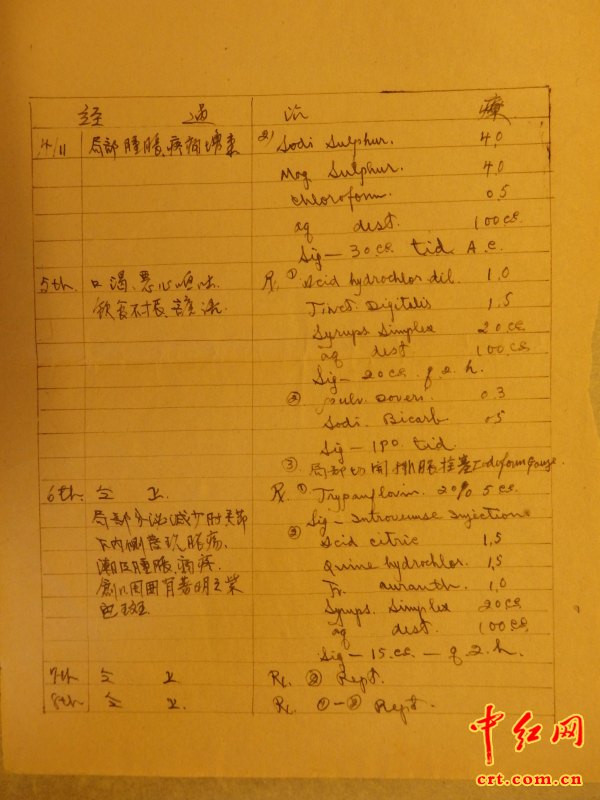 经 过 治 療
4/11 局部腫脹,疼痛增高 2) Sodi Sulphur. 4.0
Mag Sulphur. 4.0
Chloroform. 0.5
aq dest. 100 cc.
Sig — 30 cc. tid. A.c.
5th. 口渴,恶心呕吐 Rx. ① Acid hydrochlor. dil. 1.0
飲食不振 Tinct. Digitalis 1.5
Syrups Simplex 20 cc
aq dest 100 cc
Sig — 20 cc. q. 2. h.
② Pulv. Doveri. 0.3
Sodi. Bicarb 0.5
Sig — 1 PO. tid.
③ 局部切開排脹栓塞 Iodoform Gauze.
6th 仝 上. Rx. ① Trypanflavin. 20% 5 cc.
局部分泌減少肘关節 Sig — Introvenuse Injection
下内側 ② Acid citric 1.5
腫脹,疼痛. Quine hydrochlor. 1.5
創口周囲 Tr. auranth. 1.0
色斑. Syrups. Simplex 20 cc
aq dest. 100 cc
Sig — 15. cc. — q. 2. h.
7th 仝 上 Rx. ② Rept.
8th 仝 上. Rx. ①—② Rept.
中红网
crt.com.cn